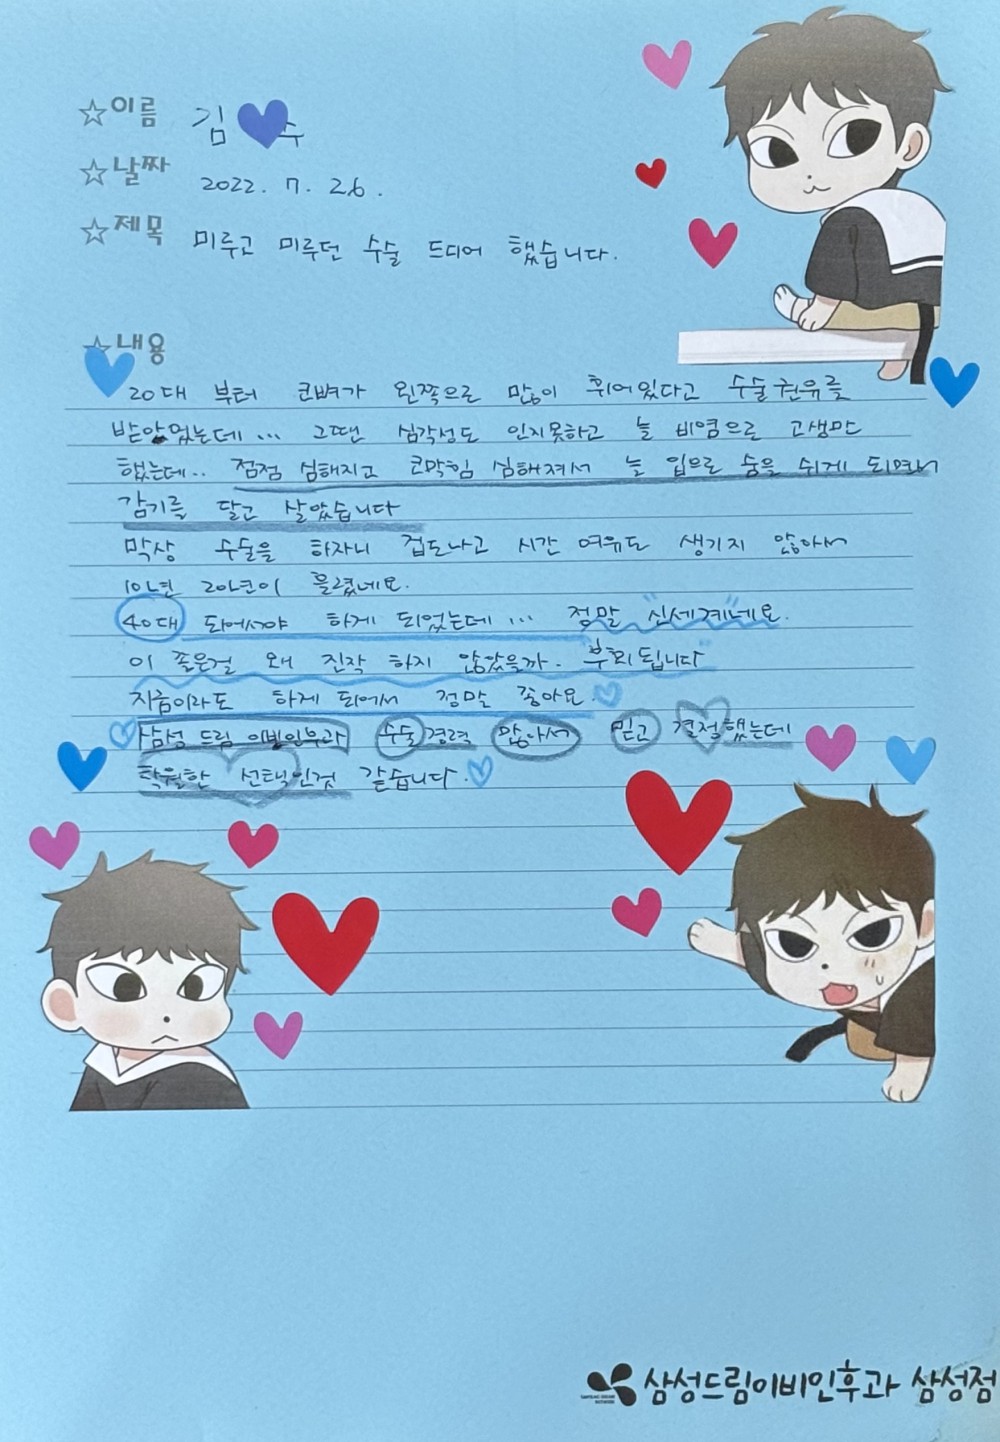 ☆이름 김 수
☆날짜 2022. 7. 26.
☆제목 미루고 미루던 수술 드디어 했습니다.
☆내용
20대 부터 코뼈가 왼쪽으로 많이 휘어있다고 수술권유를
받았었는데... 그땐 심각성도 인지못하고 늘 비염으로 고생만
했는데.. 점점 심해지고 코막힘 심해져서 늘 입으로 숨을 쉬게 되면서
감기를 달고 살았습니다
막상 수술을 하자니 겁도나고 시간 여유도 생기지 않아서
10년 20년이 흘렀네요.
40대 되어서야 하게 되었는데... 정말 "신세계"네요.
이 좋은걸 왜 진작 하지 않았을까. "후회"됩니다
지금이라도 하게 되어서 정말 좋아요.
삼성 드림 이빈인후과 수술경력 많아서 믿고 결정했는데
탁월한 선택인것 같습니다.
삼성드림이비인후과 삼성점